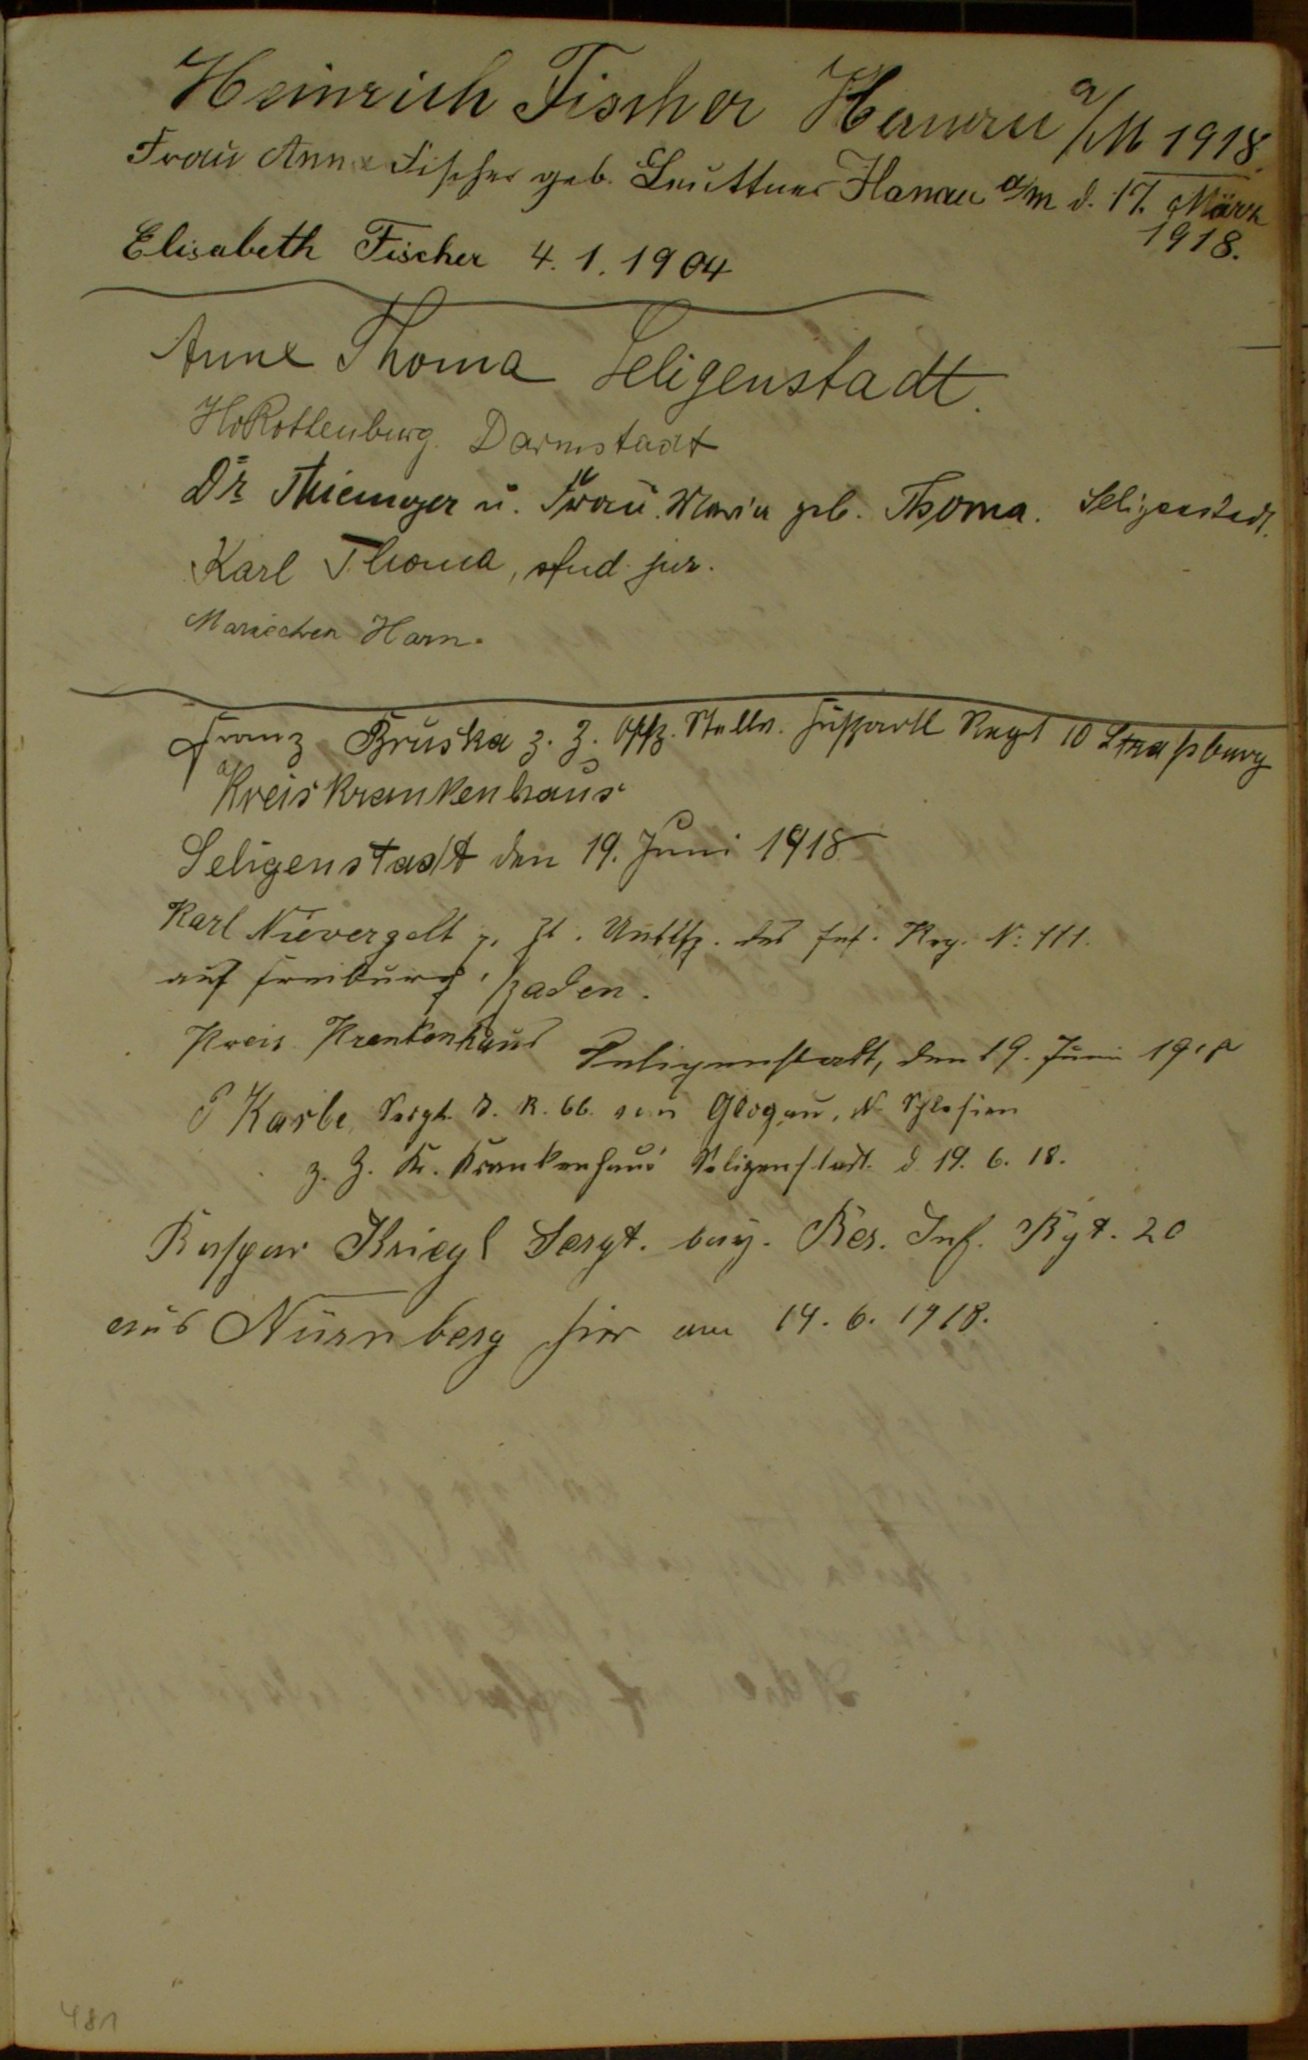 Heinrich Fischer Hanau a/M 1918.
Frau Anna Fischer geb. Leuttner Hanau a/M d. 17. März
1918.
Elisabeth Fischer 4. 1. 1904
Anne Thoma Seligenstadt.
Rottenburg. Darmstadt
Dr Thiemeyer u. Frau Maria geb. Thoma. Seligenstadt.
Karl Thoma, stud. jur.
Mariechen Harn.
Franz Bruska z. Z. Offz. Stellv. Fußartl Regt 10 Straßburg
Kreiskrankenhaus
Seligenstadt den 19. Juni 1918
Karl Nievergelt z. Zt. Untffz. des Inf. Reg. N: 111.
aus Freiburg, Baden.
Kreis Krankenhaus Seligenstadt, den 19. Juni 1918
P Karbe, Sergt. J. R. 66. aus Glogau, N. Schlesien
z. Z. Kr. Krankenhaus Seligenstadt d. 19. 6. 18.
Kaspar Kriegl Sergt. bay. Res. Inf. Rgt. 20
aus Nürnberg hier am 19. 6. 1918.
481